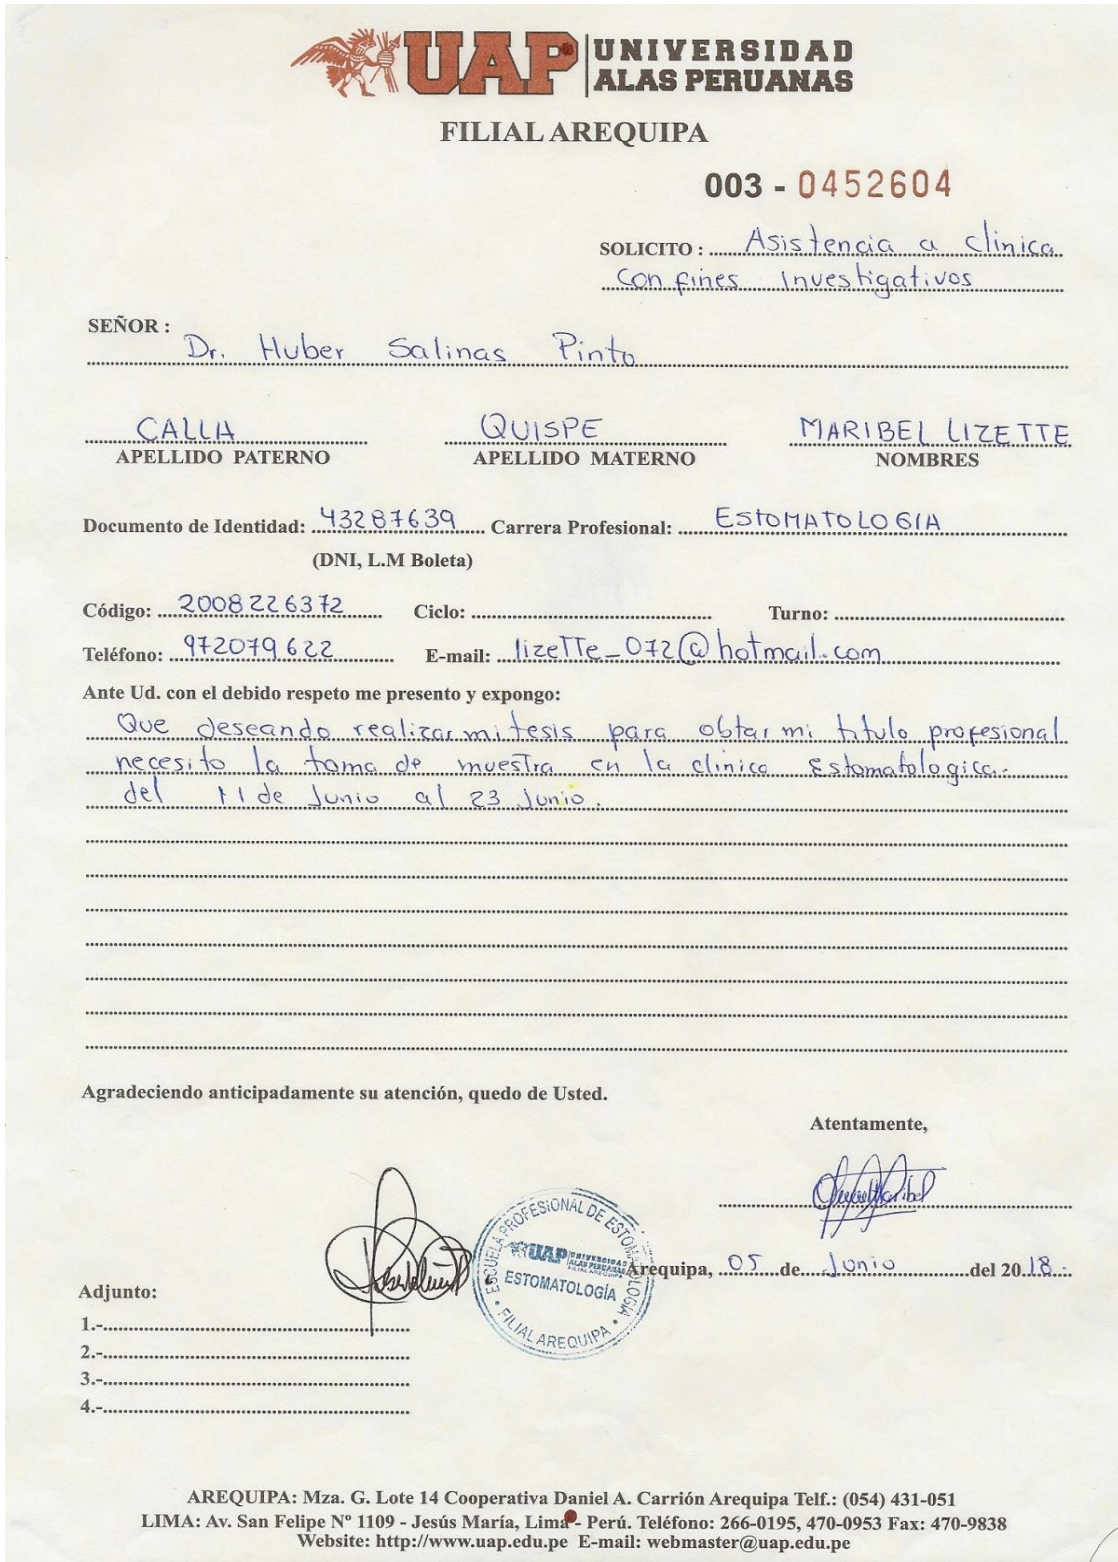 UAP UNIVERSIDAD
ALAS PERUANAS
FILIAL AREQUIPA
003 - 0452604
SOLICITO : Asistencia a clinica
con fines investigativos
SEÑOR :
Dr. Huber Salinas Pinto
CALLA QUISPE MARIBEL LIZETTE
APELLIDO PATERNO APELLIDO MATERNO NOMBRES
Documento de Identidad: 43287639 Carrera Profesional: ESTOMATOLOGIA
(DNI, L.M Boleta)
Código: 2008226372 Ciclo: Turno:
Teléfono: 972079622 E-mail: lizette_072@hotmail.com
Ante Ud. con el debido respeto me presento y expongo:
Que deseando realizar mi tesis para obtar mi titulo profesional
necesito la toma de muestra en la clinica Estomatologica.
del 11 de Junio al 23 Junio.
Agradeciendo anticipadamente su atención, quedo de Usted.
Atentamente,
ESCUELA PROFESIONAL DE ESTOMATOLOGÍA
UAP UNIVERSIDAD ALAS PERUANAS
FILIAL AREQUIPA
ESTOMATOLOGÍA
FILIAL AREQUIPA
Arequipa, 05 de Junio del 2018.
Adjunto:
1.-
2.-
3.-
4.-
AREQUIPA: Mza. G. Lote 14 Cooperativa Daniel A. Carrión Arequipa Telf.: (054) 431-051
LIMA: Av. San Felipe Nº 1109 - Jesús María, Lima - Perú. Teléfono: 266-0195, 470-0953 Fax: 470-9838
Website: http://www.uap.edu.pe E-mail: webmaster@uap.edu.pe